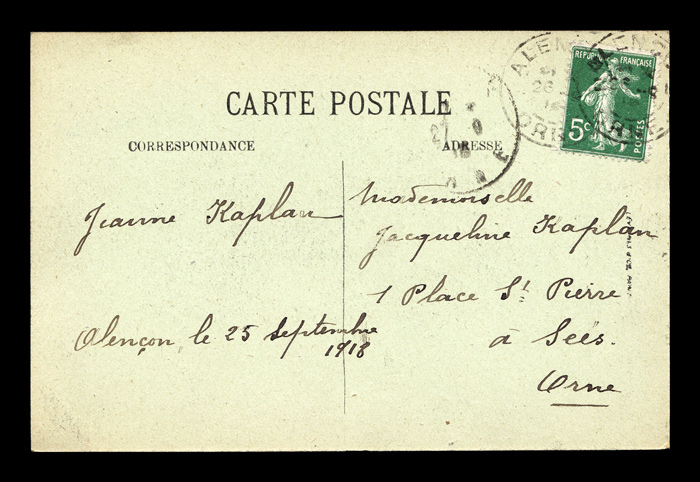 CARTE POSTALE
CORRESPONDANCE
ADRESSE
REPUB FRANÇAISE
5c
POSTES
ALEN
26
ORNE
27
9
18
Jeanne Kaplan
Alençon, le 25 septembre
1918
Mademoiselle
Jacqueline Kaplan
1 Place St Pierre
à Seés.
Orne